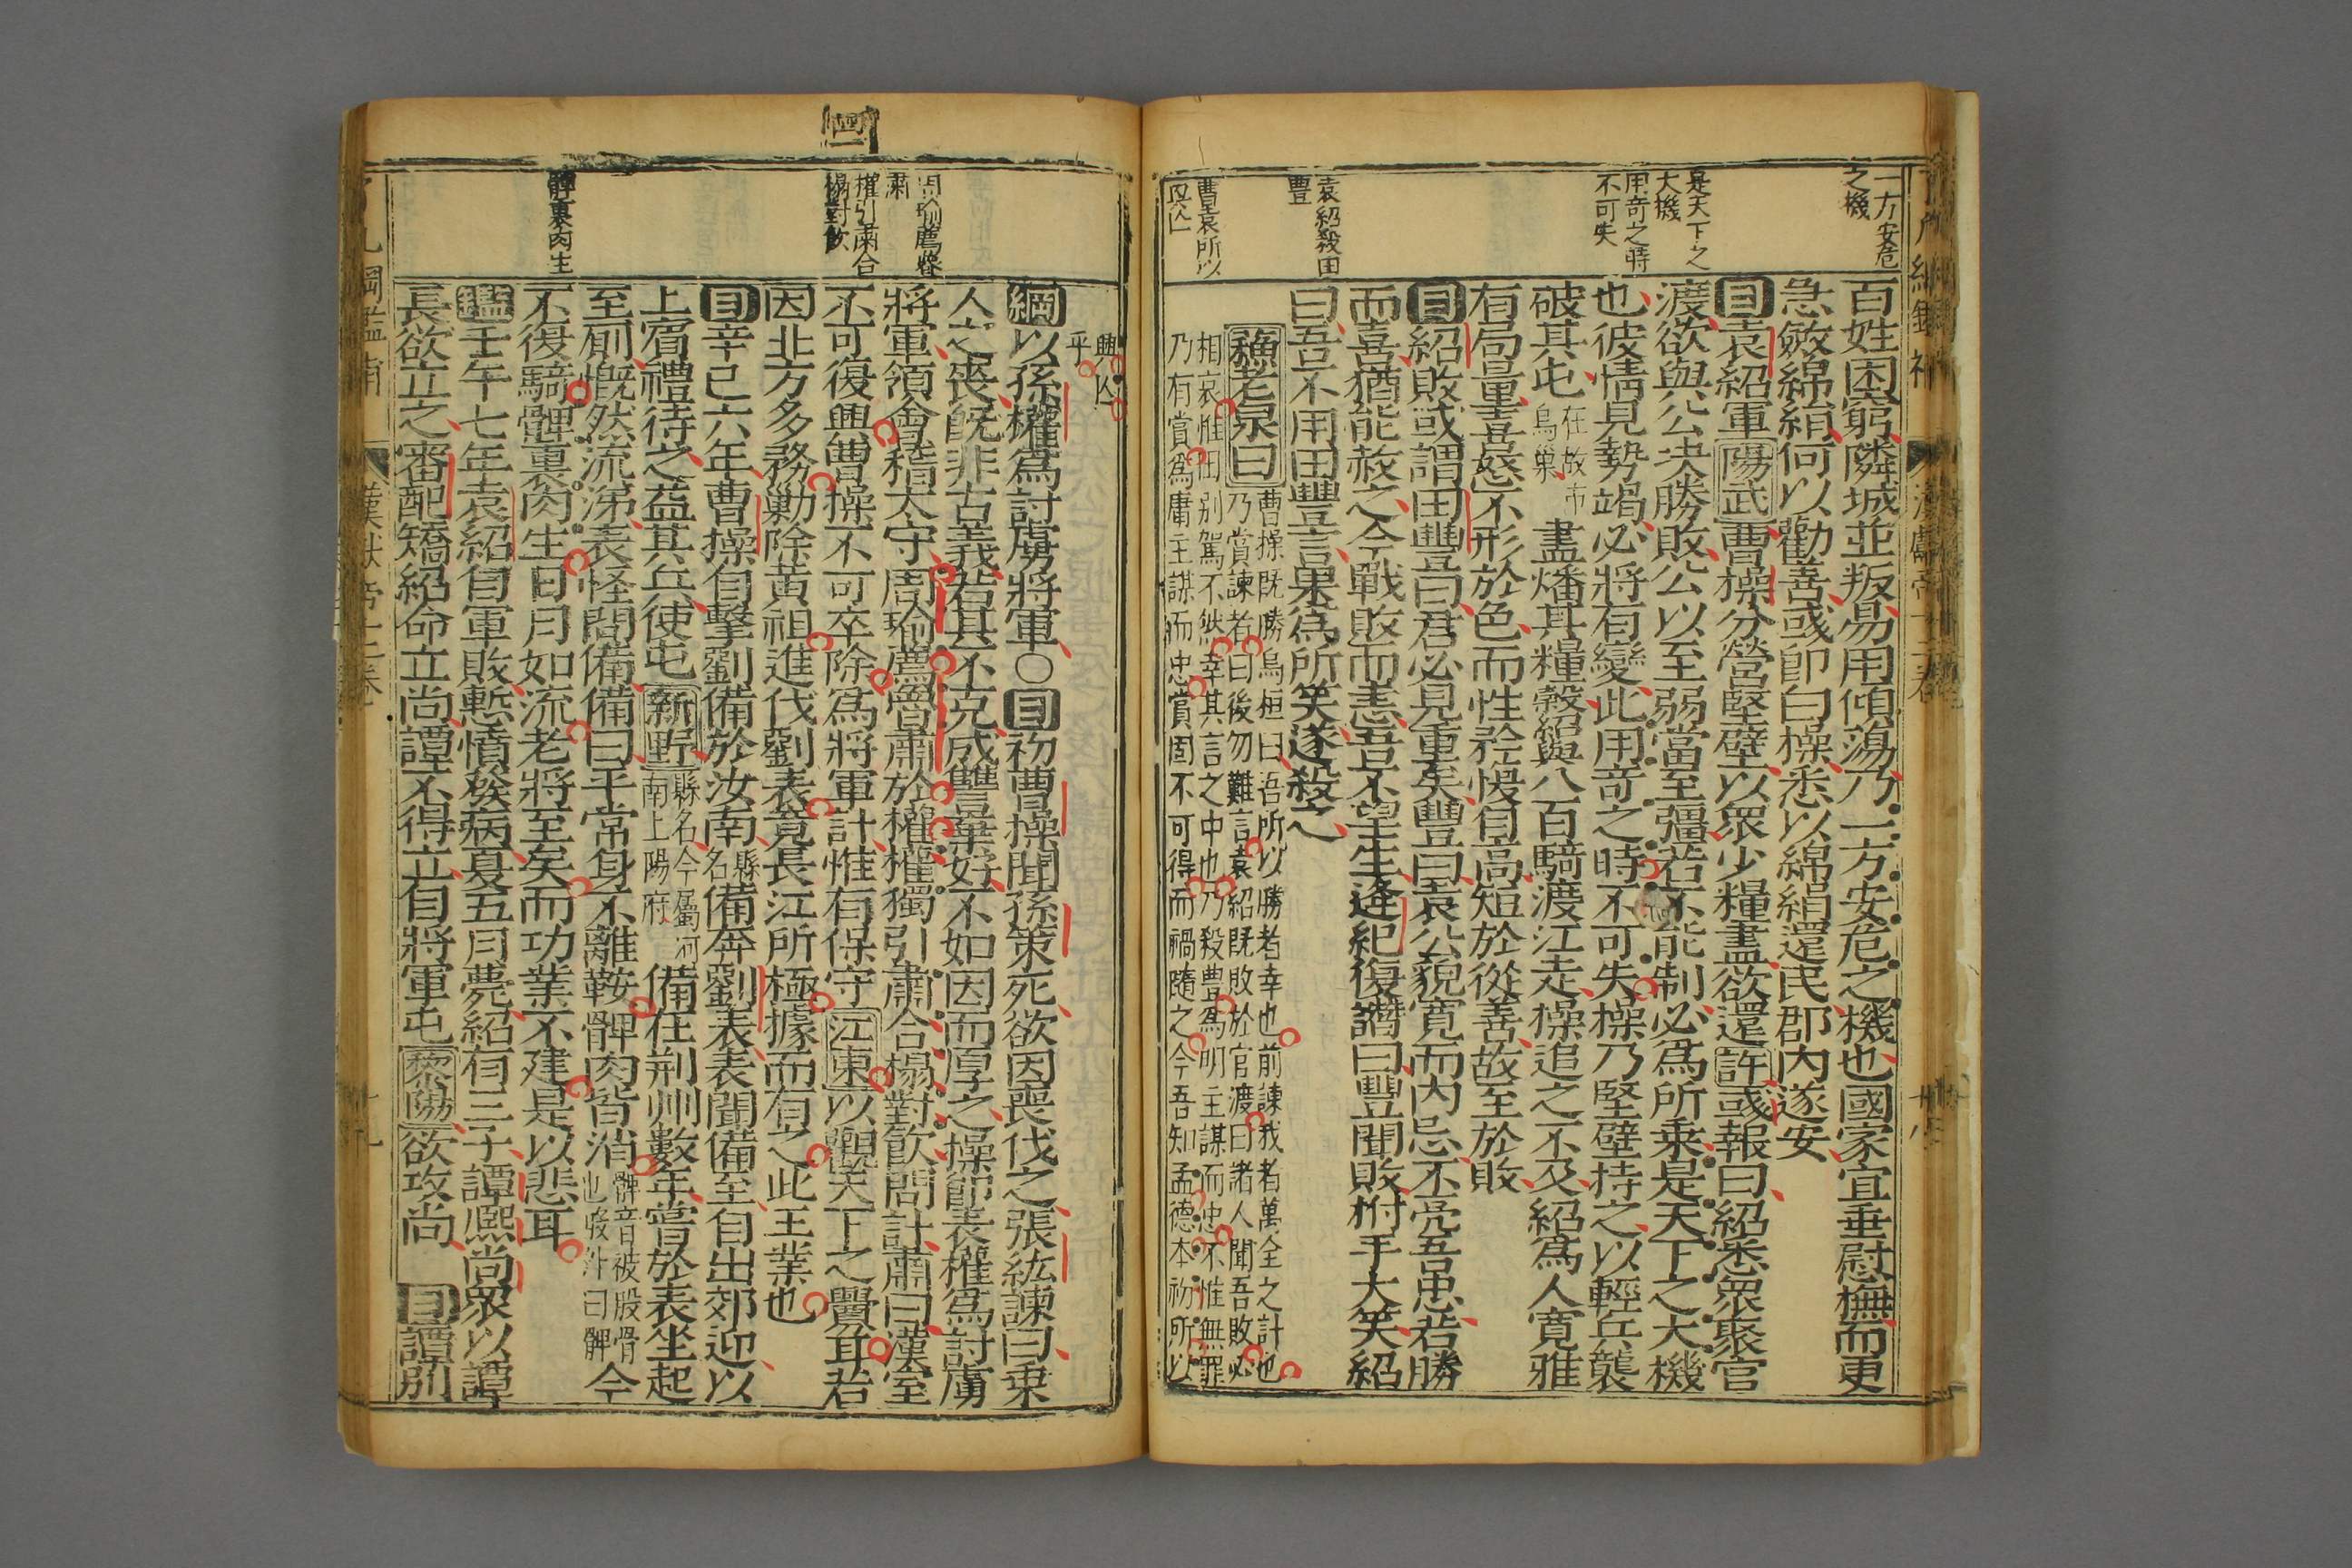 一方安危
之機
是天下之
大機
用奇之時
不可失
袁紹殺田
豊
曹袁所以
興亾
百姓困窮隣城並叛易用傾蕩乃一方安危之機也國家宜垂慰撫而更
急斂綿絹何以勸善彧卽白操悉以綿絹還民郡内遂安
目袁紹軍陽武曹操分營堅壁以衆少糧盡欲還許彧報曰紹悉衆聚官
渡欲與公决勝敗公以至弱當至彊若不能制必爲所乗是天下之大機
也彼情見勢竭必將有變此用竒之時不可失操乃堅壁持之以輕兵襲
破其屯在故市烏巢盡燔其糧穀紹與八百騎渡江走操追之不及紹爲人寛雅
有局量喜怒不形於色而性矜愎自高短於從善故至於敗
目紹敗或謂田豐曰君必見重矣豐曰袁公貌寛而内忌不亮吾忠若勝
而喜猶能赦之今戰敗而恚吾不望生逄紀復譖曰豐聞敗拊手大笑紹
曰吾不用田豐言果爲所笑遂殺之
蘓老泉曰曹操既勝烏桓曰吾所以勝者幸也前諫我者萬全之計也
乃賞諫者曰後勿難言袁紹既敗於官渡曰諸人聞吾敗必
相哀惟田别駕不然幸其言之中也乃殺豊爲明主謀而忠不惟無罪
乃有賞爲庸主謀而忠賞固不可得而禍隨之今吾知孟德本初所以
興亾
乎
四
周瑜薦魯
肅
權引肅合
榻對飲
髀裏肉生
綱以孫權爲討虜將軍○目初曹操聞孫策死欲因喪伐之張紘諫曰乗
人之喪既非古義若其不克成讐棄好不如因而厚之操卽表權爲討虜
將軍領會稽太守周瑜薦魯肅於權權獨引肅合榻對飲問計肅曰漢室
不可復興曹操不可卒除爲將軍計惟有保守江東以觀天下之釁耳若
因北方多務勦除黄祖進伐劉表竟長江所極據而有之此王業也
目辛巳六年曹操自擊劉備於汝南縣名備奔劉表表聞備至自出郊迎以
上賓禮待之益其兵使屯新野縣名今屬河南上陽府備在荆州數年嘗於表坐起
至厠慨然流涕表怪問備備曰平常身不離鞍髀肉皆消髀音被股骨也股外曰髀今
不復騎髀裏肉生日月如流老將至矣而功業不建是以悲耳
鑑壬午七年袁紹自軍敗慙憤發病夏五月薨紹有三子譚熈尚衆以譚
長欲立之審配矯紹命立尚譚不得立自將軍屯黎陽欲攻尚 目譚別